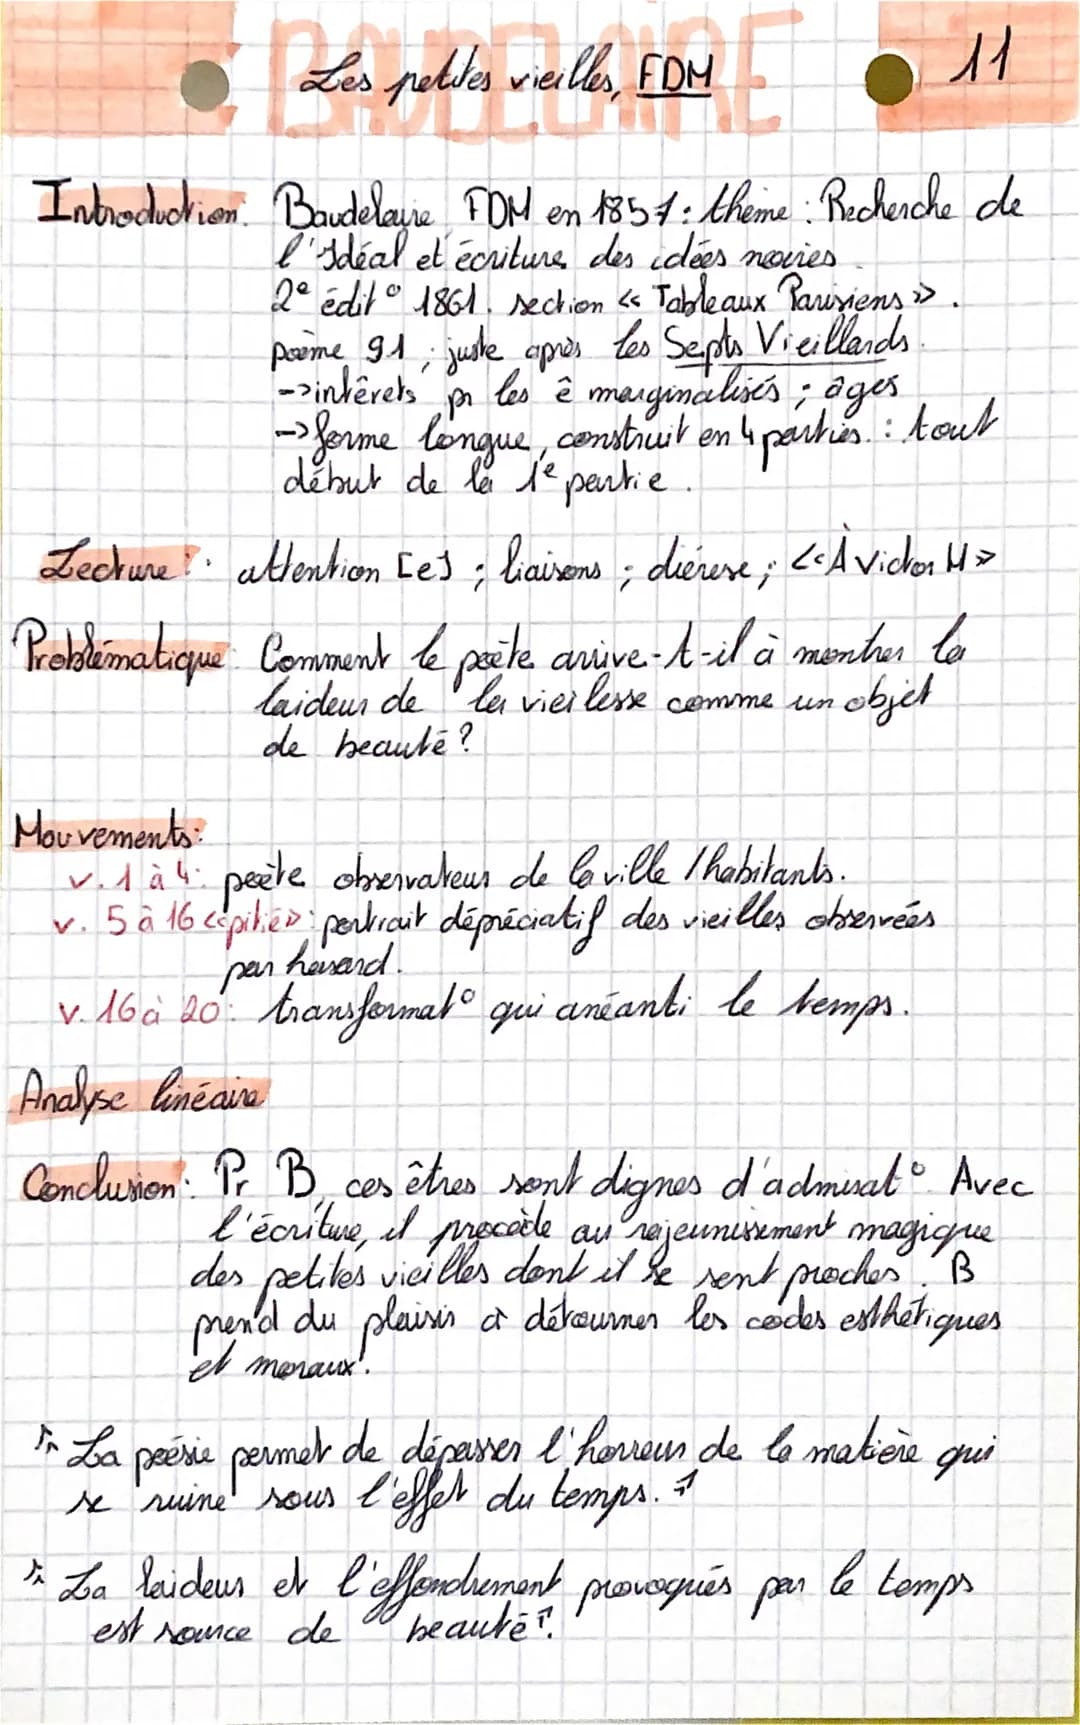 BAUDELAIRE
Les petites vieilles, FDM
11
Introduction: Baudelaire, FDM en 1857 : thème : Recherche de
l'Idéal et écriture des idées noires.
2e édit° 1861. section << Tableaux Parisiens >>.
poème 91 ; juste après les Septs Vieillards.
->intêrets pr les ê marginalisés ; âges
->forme longue, construit en 4 parties. : tout
début de la 1e partie.
Lecture : attention [e] ; liaisons ; diérèse ; <<À Victor H>>
Problématique: Comment le poète arrive-t-il à montrer la
laideur de la vieilesse comme un objet
de beauté ?
Mouvements:
v. 1 à 4: poète observateur de la ville / habitants.
v. 5 à 16 <<pitié>>: portrait dépréciatif des vieilles observées
par hasard.
v. 16 à 20: transformat° qui anéanti le temps.
Analyse linéaire
Conclusion: Pr B, ces êtres sont dignes d'admirat°. Avec
l'écriture, il procède au rajeunissement magique
des petites vieilles dont il se sent proches. B
prend du plaisir à détourner les codes esthétiques
et moraux.
La poésie permet de dépasser l'horreur de la matière qui
se ruine sous l'effet du temps.
La laideur et l'effondrement provoqués par le temps
est source de beauté.